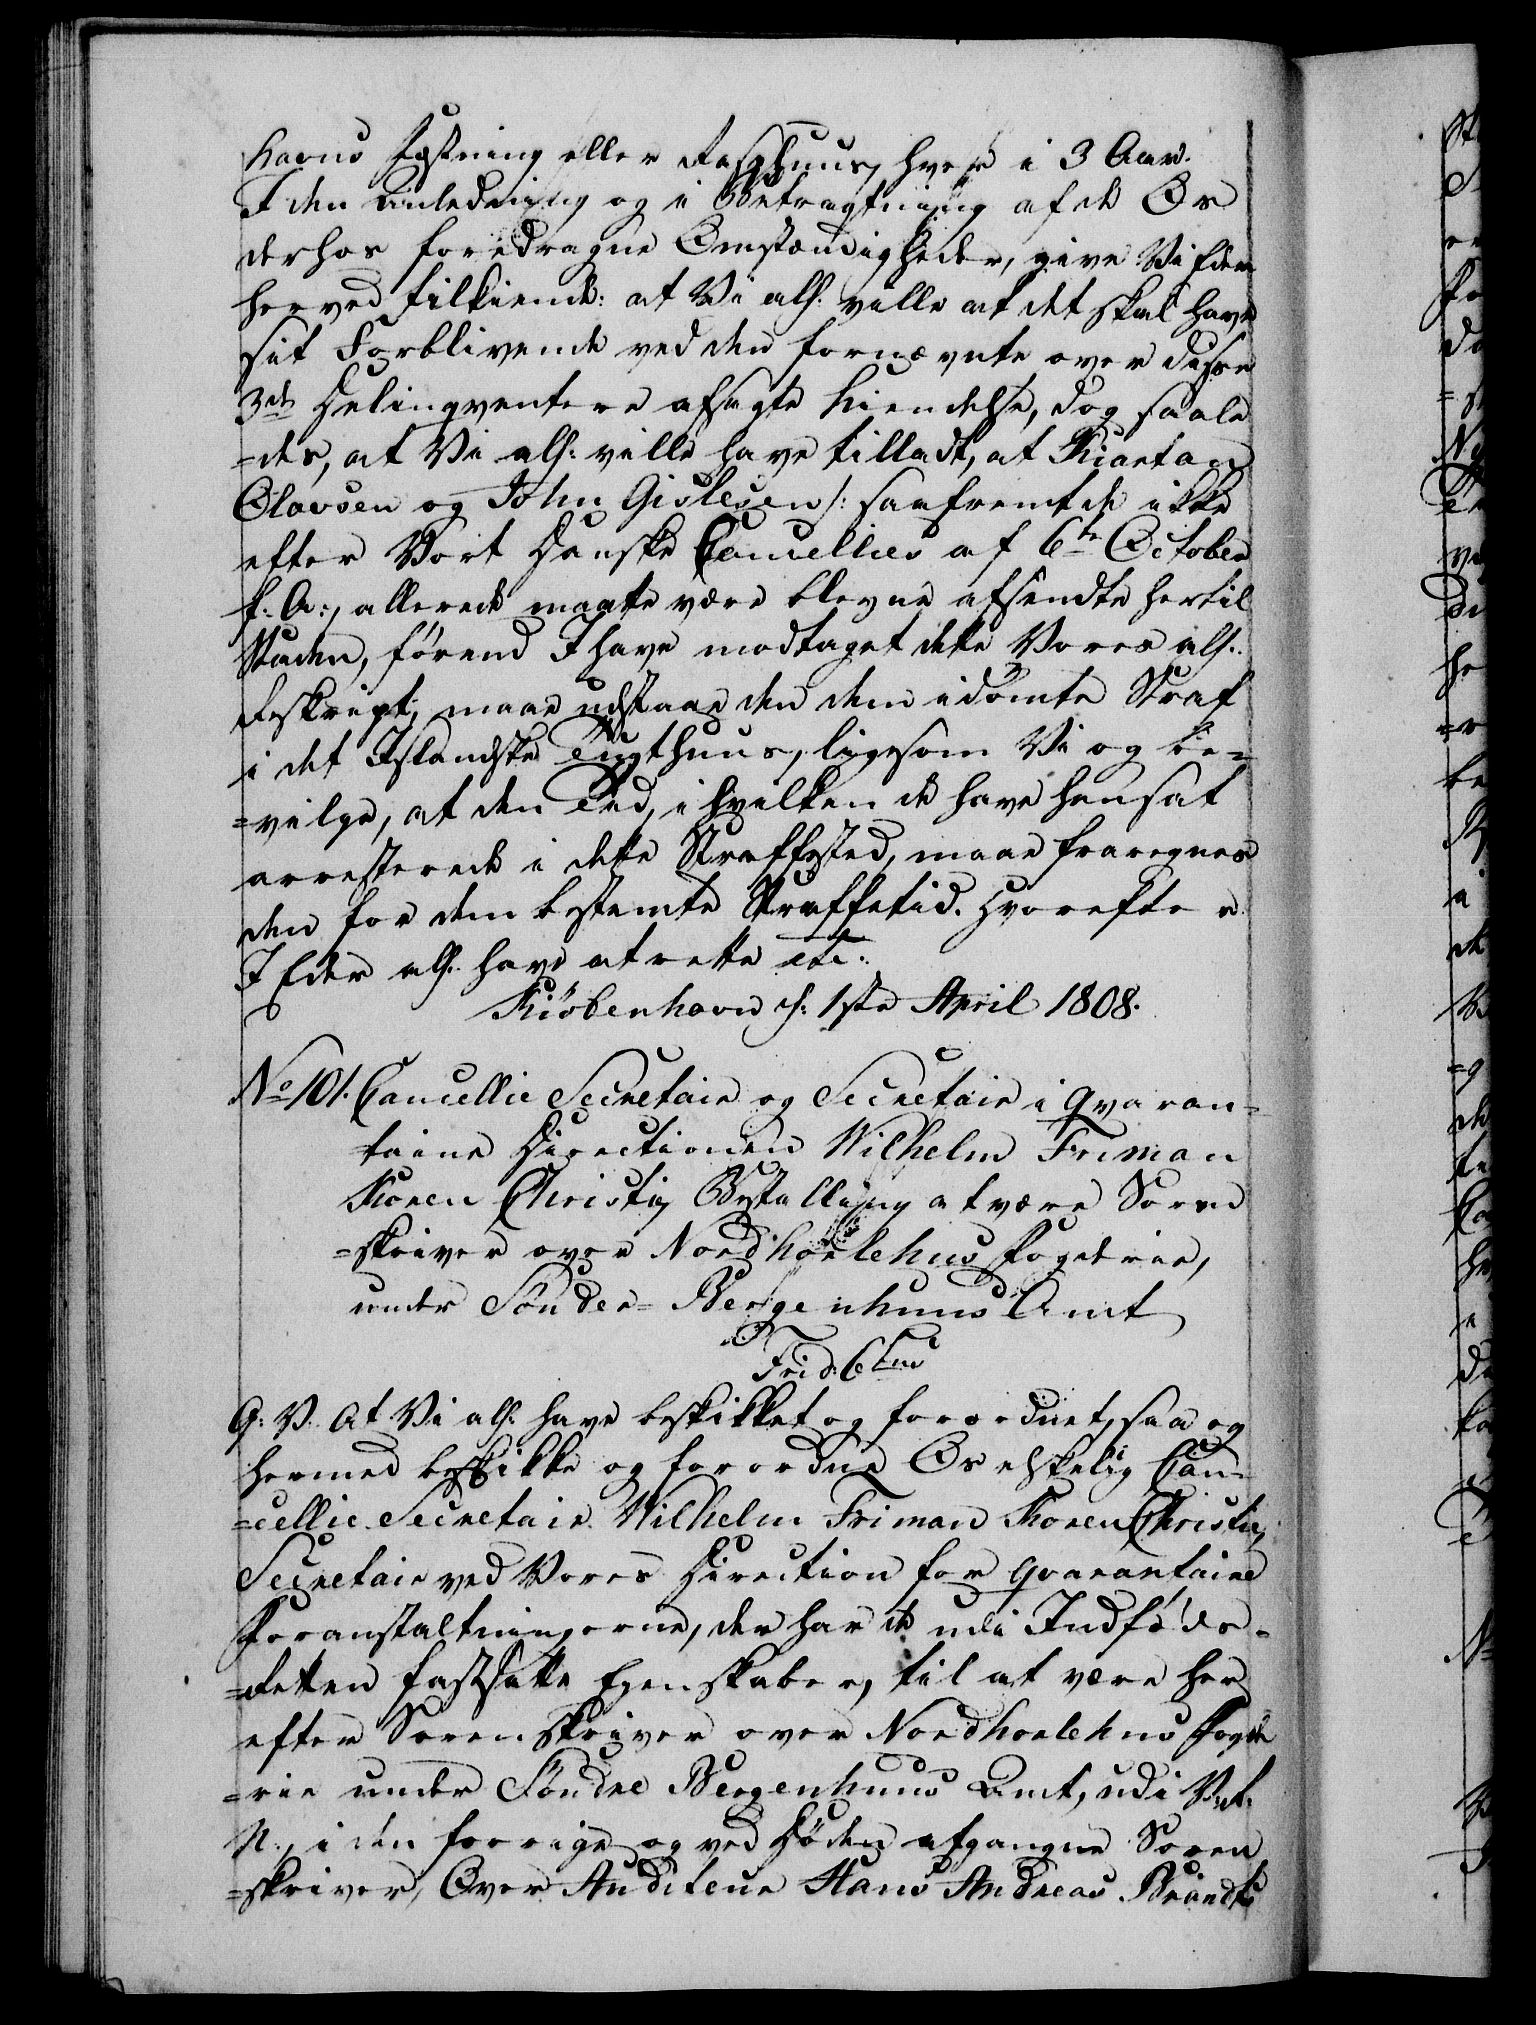 havns Fæstning eller Rasphuus, hver i 3 Aar.
I den Anledning og i Betragtning af de Os
derhos foredragne Omstændigheder, give Vi Eder
herved tilkiende: at Vi allr. ville at det skal have
sit Forblivende ved den fornævnte over disse
3de Delinqventere afsagte Kiendelse, dog saale
=des, at Vi allr. ville have tilladt, at Kiartan
Olavsen og John Gislesen /: saafremt de ikke
efter Vort Danske Cancellies af 6te October
f: A:, allerede maatte være blevne afsendte hertil
Staden, førend I have modtaget dette Vores allr.
Reskript, maae udstaae den dem idømte Straf
i det Islandske Tugthuus, ligesom Vi og be=
=vilge, at den Tid, i hvilken de have hensat
arresterede i dette Straffested, maae fraregnes
den for dem bestemte Straffetid. Hvorefter
I Eder allr. have at rette etc:
Kiöbenhavn d: 1ste April 1808.
No 101. Cancellie Secretair og Secretair i Qvaran=
taine Directionen Wilhelm Friman
Koren Christie, Bestalling at være Soren
=skriver over Nordhorlehns Fogderie,
under Sönder=Bergenhuus Amt
Frid: 6tus
G: V: At Vi allr. have beskikket og forordnet, saa og
hermed beskikke og forordne Os elskelig Can=
=cellie Secretair Wilhelm Friman Koren Christie,
Secretair ved Vores Direction for Qvarantaine
Foranstaltningerne, der har de udi Indföds=
=Retten fastsatte Egenskaber, til at være her
efter Sorenskriver over Nordhorlehns Fogde
=rie under Söndre Bergenhuus Amt, udi V: R:
N:, i den forrige og ved Döden afgangne Soren
=skriver, Over Auditeur Hans Andreas Brandts